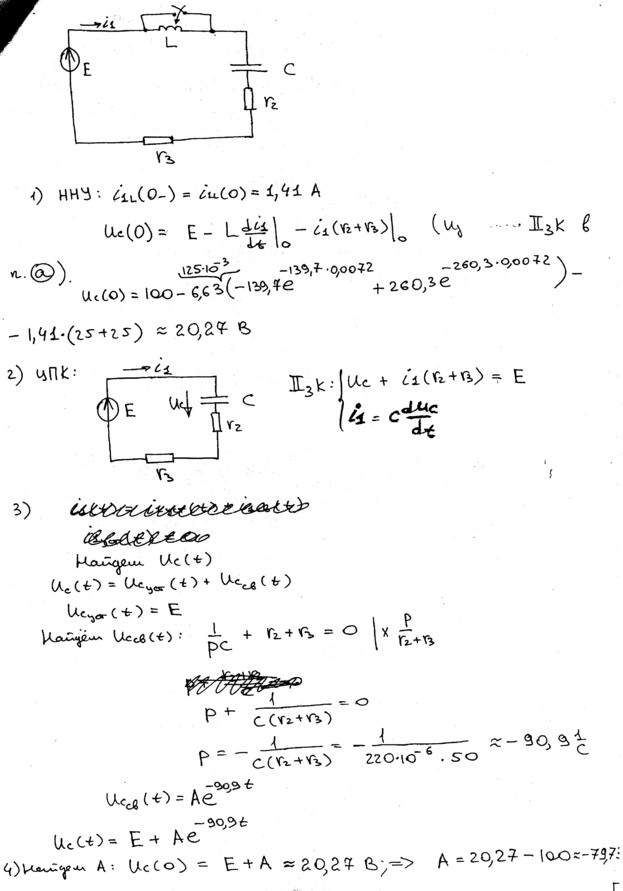 i₁
L
E
C
r₂
r₃
1) ННУ: i₁L(0-) = iu(0) = 1,41 А
Uc(0) = E - L di₁/dt |₀ - i₁(r₂+r₃)|₀ (из II з.К в
п. (а)).
125·10⁻³
Uc(0) = 100 - 6,63(-139,7e^(-139,7·0,0072) + 260,3e^(-260,3·0,0072)) -
- 1,41·(25+25) ≈ 20,27 В
2) ЦПК:
i₁
E
Uc
C
r₂
r₃
II з.К: { Uc + i₁(r₂+r₃) = E
i₁ = C dUc/dt
3)
Найдем Uc(t)
Uc(t) = Ucуст(t) + Ucсв(t)
Ucуст(t) = E
Найдём Ucсв(t): 1/pC + r₂ + r₃ = 0 | × p/(r₂+r₃)
p + 1/(C(r₂+r₃)) = 0
p = - 1/(C(r₂+r₃)) = - 1/(220·10⁻⁶·50) ≈ -90,9 1/с
Ucсв(t) = Ae^(-90,9t)
Uc(t) = E + Ae^(-90,9t)
4) Найдем A: Uc(0) = E + A ≈ 20,27 В; => A = 20,27 - 100 ≈ -79,73